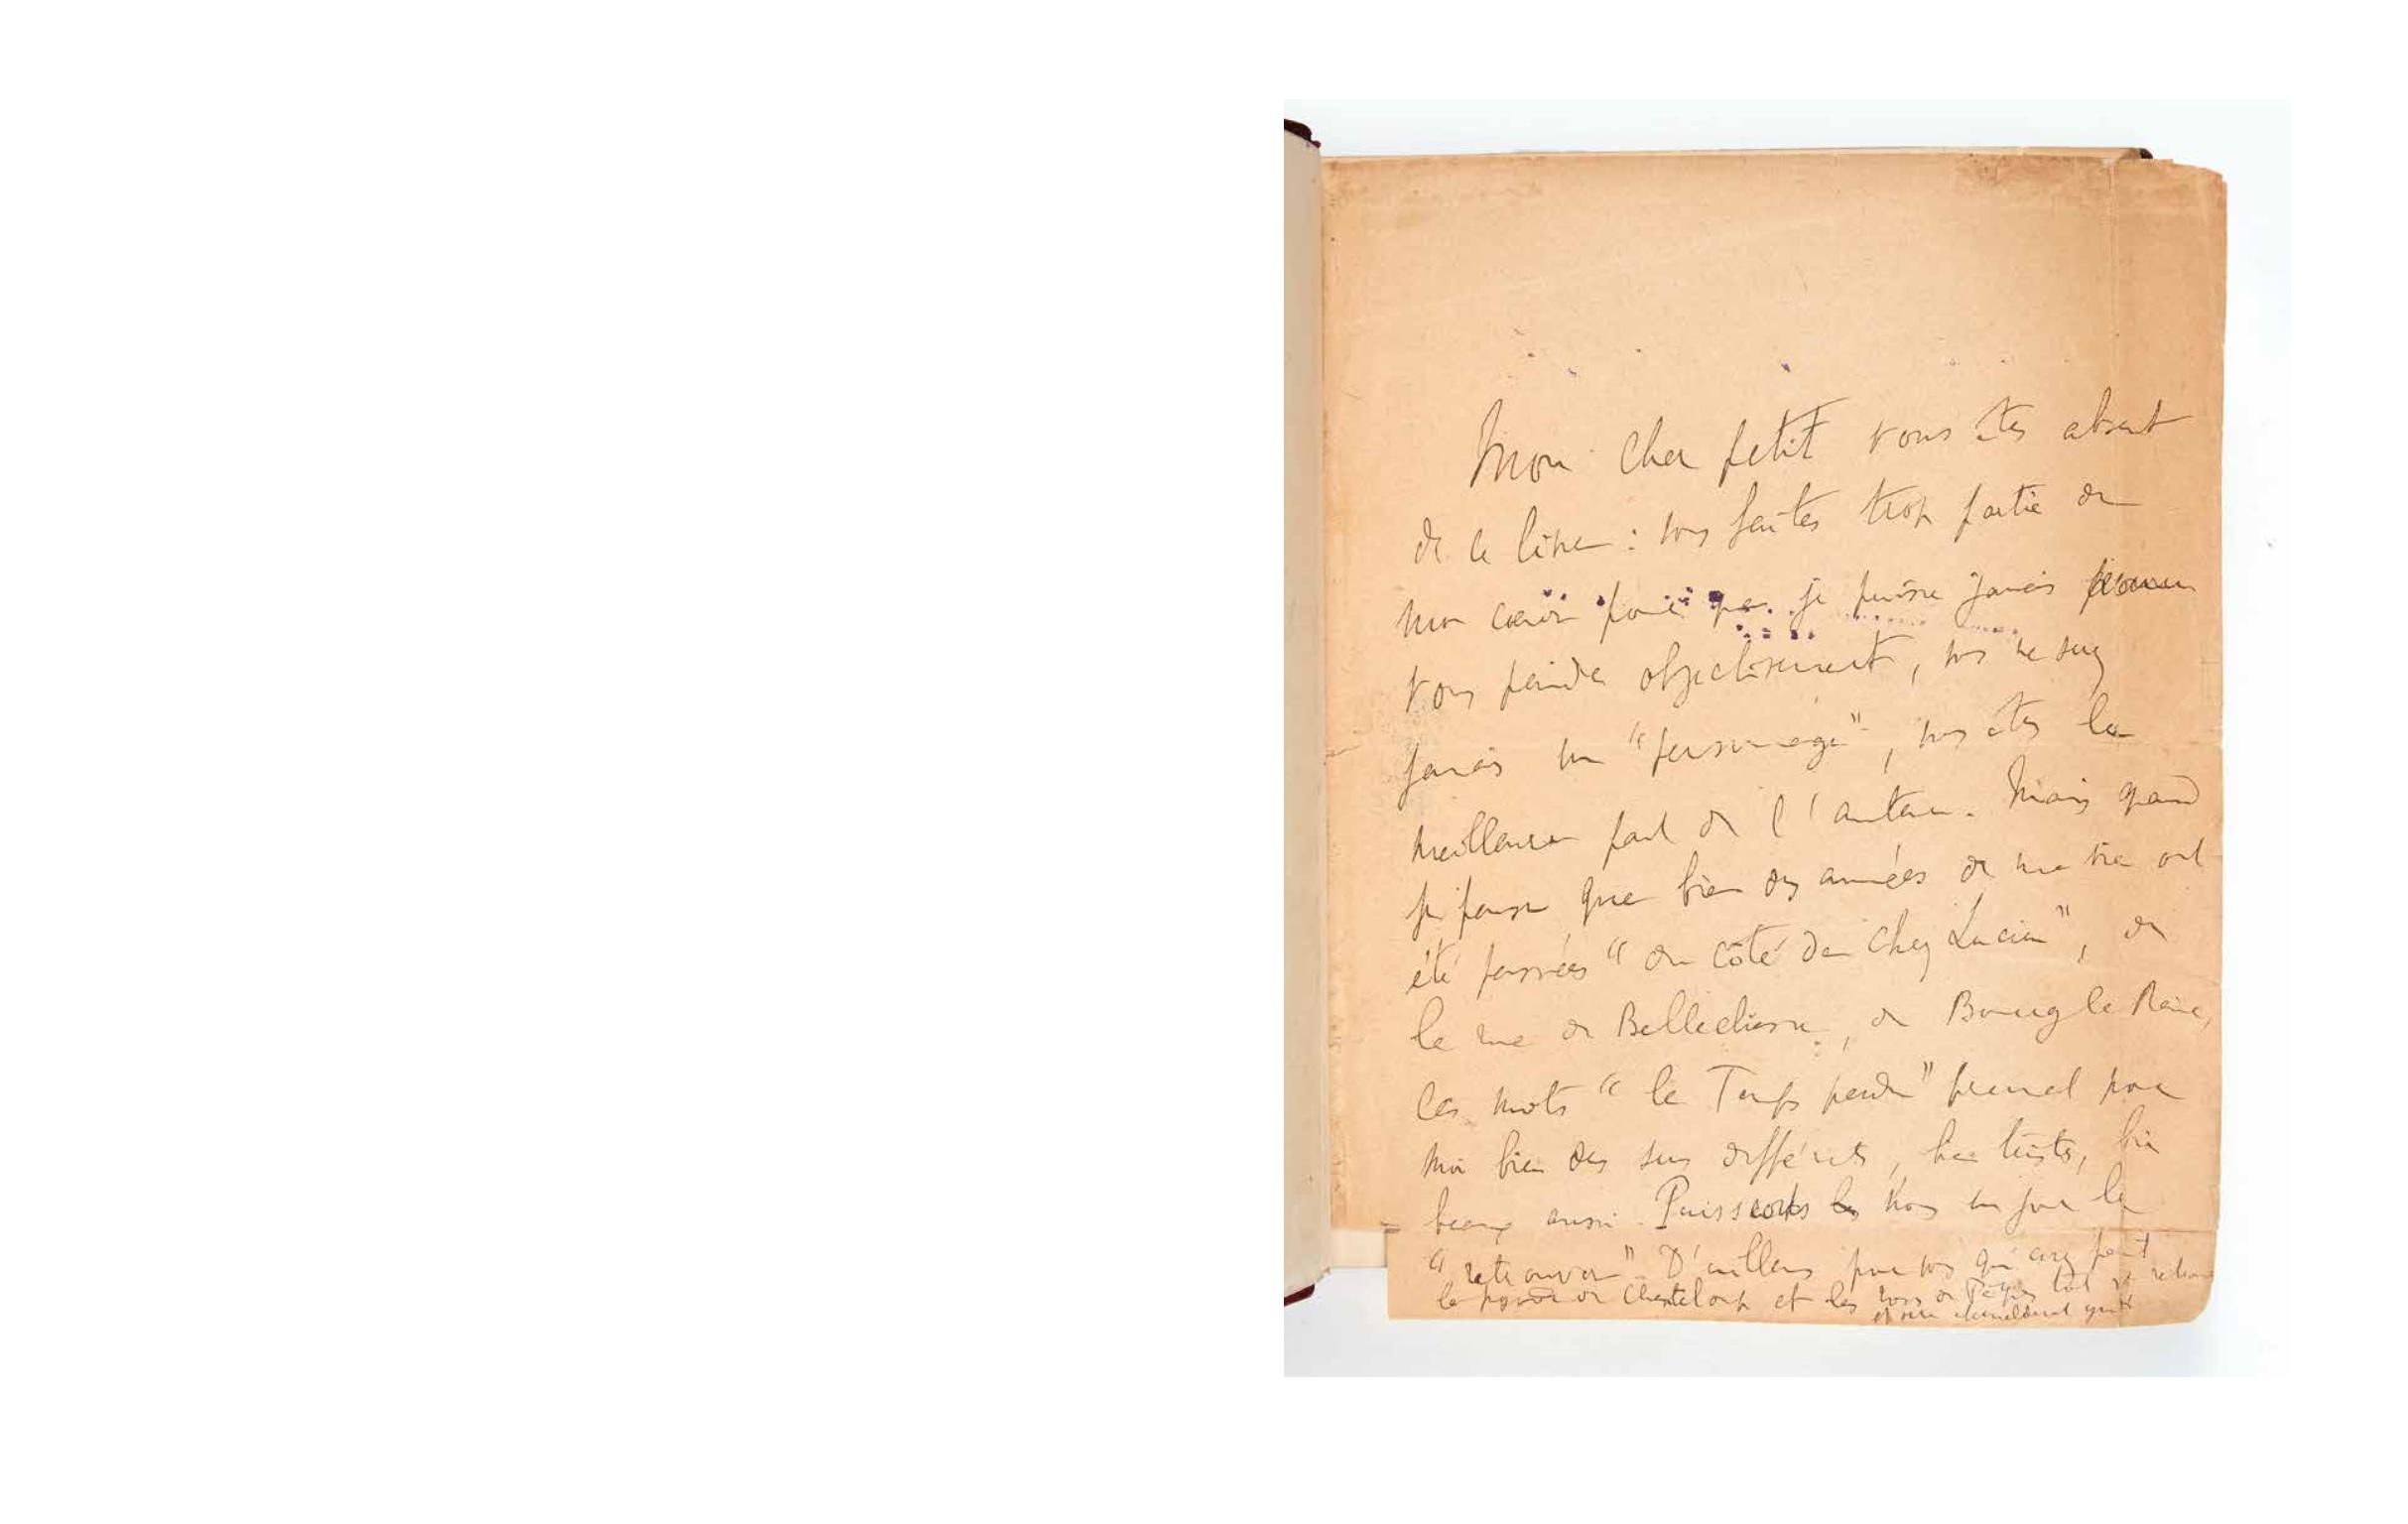 Mon cher petit vous êtes absent
de ce livre : vous faites trop partie de
mon cœur pour que je puisse jamais
vous peindre objectivement, vous ne serez
jamais un "personnage", vous êtes la
meilleure part de l'auteur. Mais quand
je pense que bien des années de ma vie ont
été passées "du côté de chez Lucien", de
la rue de Bellechasse, de Bourg la Reine,
les mots "le Temps perdu" prennent pour
moi bien des sens différents, bien tristes, bien
beaux aussi. Puissions nous un jour le
"retrouver". D'ailleurs pour vous qui avez peint
la pagode de Chanteloup et les de tout se retrouve
et